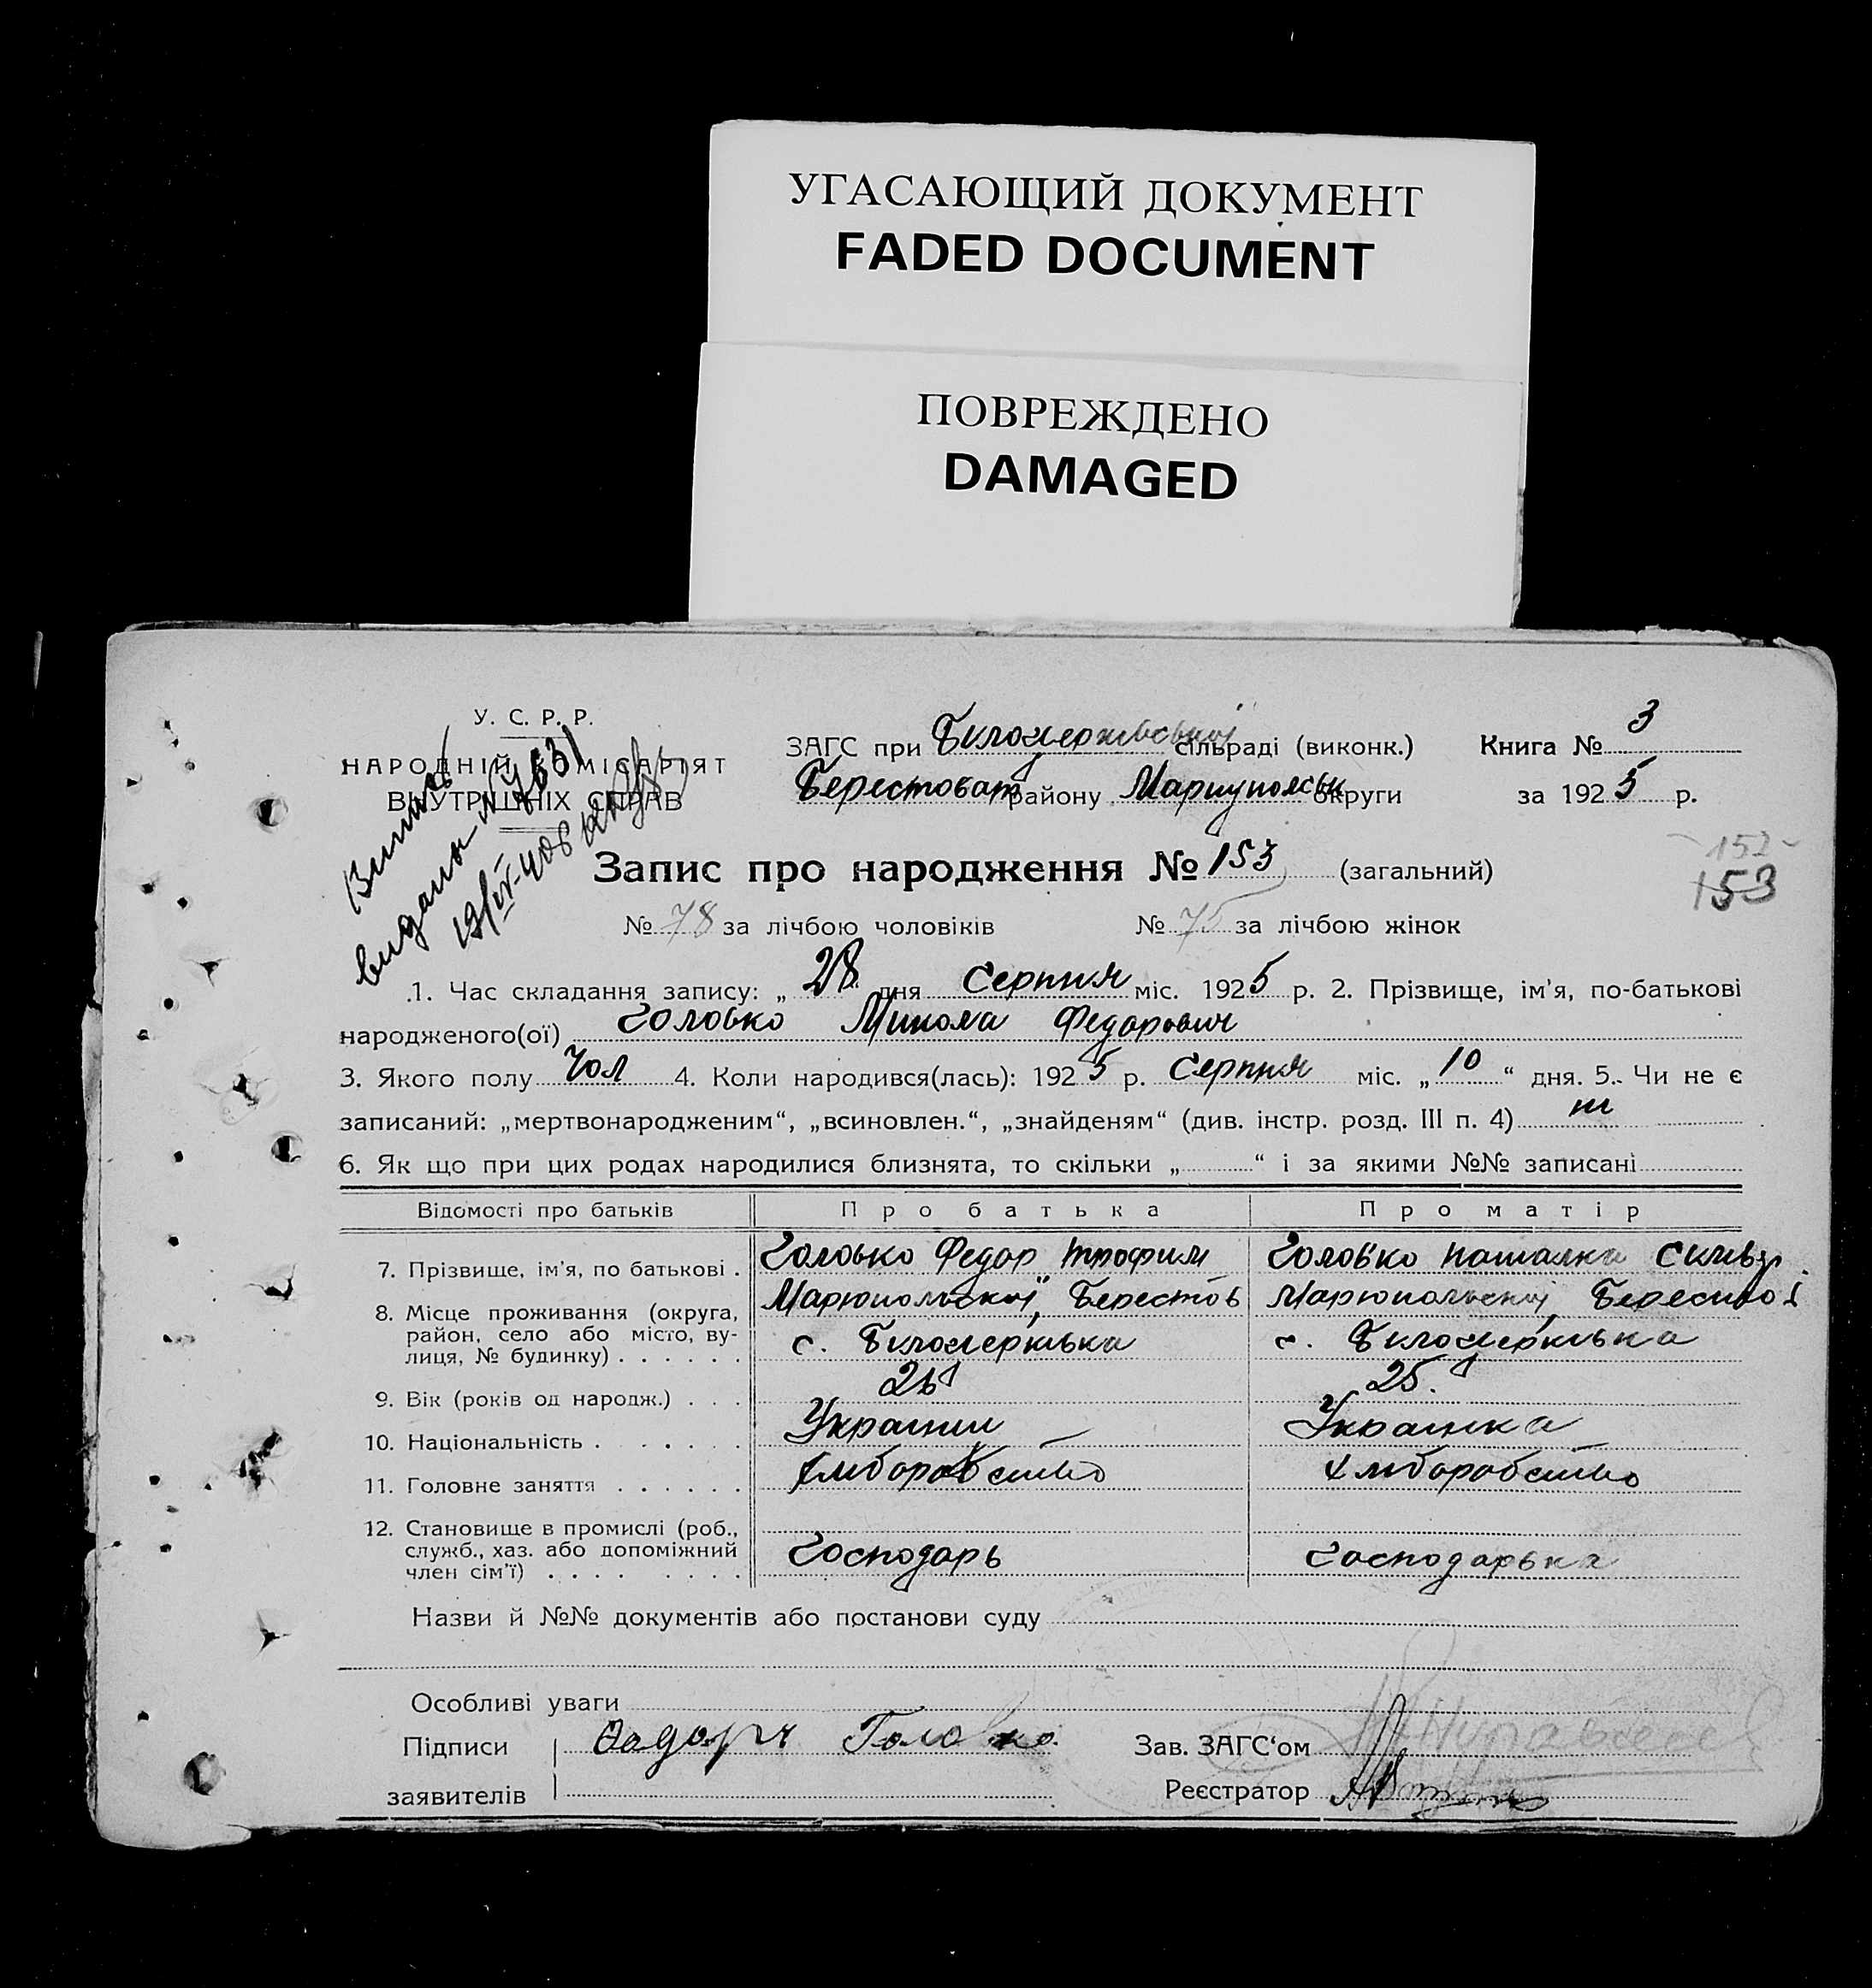 УГАСАЮЩИЙ ДОКУМЕНТ
FADED DOCUMENT
ПОВРЕЖДЕНО
DAMAGED
У. С. Р. Р.
НАРОДНІЙ КОМІСАРІЯТ
ВНУТРІШНІХ СПРАВ
ЗАГС при сільраді (виконк.) Книга № 3
Берестоват району Мариупольськ округи за 1925 р.
Запис про народження № 153 (загальний)
152
153
№ 78 за лічбою чоловіків № 75 за лічбою жінок
1. Час складання запису: „ 28 " дня Серпня міс. 1925 р. 2. Прізвище, ім'я, по-батькові
народженого(ої) Головко Микола Федорович
3. Якого полу Чол 4. Коли народився(лась): 1925 р. Серпня міс. „ 10 “ дня. 5. Чи не є
записаний: „мертвонародженим“, „всиновлен.“, „знайденям“ (див. інстр. розд. III п. 4) ні
6. Як що при цих родах народилися близнята, то скільки „ “ і за якими №№ записані
Відомості про батьків Про батька Про матір
7. Прізвище, ім'я, по батькові . Головко Федор Трофим Головко
8. Місце проживання (округа, Марюпольскої, Берестов Марюпольскої,
район, село або місто, ву- с. с.
лиця, № будинку) . . . . . .
9. Вік (років од народж.) . . . 25.
10. Національність . . . . . . Українка
11. Головне заняття . . . . . . Хліборобство Хліборобство
12. Становище в промислі (роб.,
служб., хаз. або допоміжний Господарь Господарька
член сім'ї) . . . . . . . .
Назви й №№ документів або постанови суду
Особливі уваги
Підписи Головко Зав. ЗАГС‘ом
заявителів Реєстратор